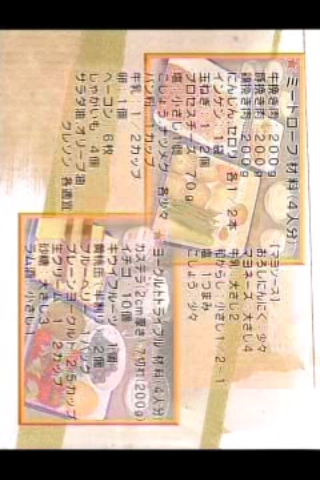 ★ミートローフ（材料：4人分）
牛挽き肉 200g
豚挽き肉 200g
鶏挽き肉 200g
にんじん、セロリ 各1／2本
インゲン 1袋
玉ねぎ：1／2個
プロセスチーズ 70g
塩：小さじ1強
こしょう、ナツメグ 各少々
パン粉 1カップ
牛乳：1／2カップ
卵：1個
ベーコン 6枚
じゃがいも 4個
サラダ油、オリーブ油
クレソン 各適宜
【マヨソース】
おろしにんにく 少々
マヨネーズ 大さじ4
牛乳 大さじ2
和からし：小さじ1／2－1
塩：1つまみ
こしょう：少々
★ヨーグルトトライフル（材料：4人分）
カステラ（2cm厚さ）7切れ（200g）
イチゴ 16個
キウイフルーツ 2個
ブルーベリー 1パック
黄桃缶（半割り）2個
プレーンヨーグルト 2.5カップ
生クリーム 1／2カップ
砂糖 大さじ3
ラム酒 小さじ1